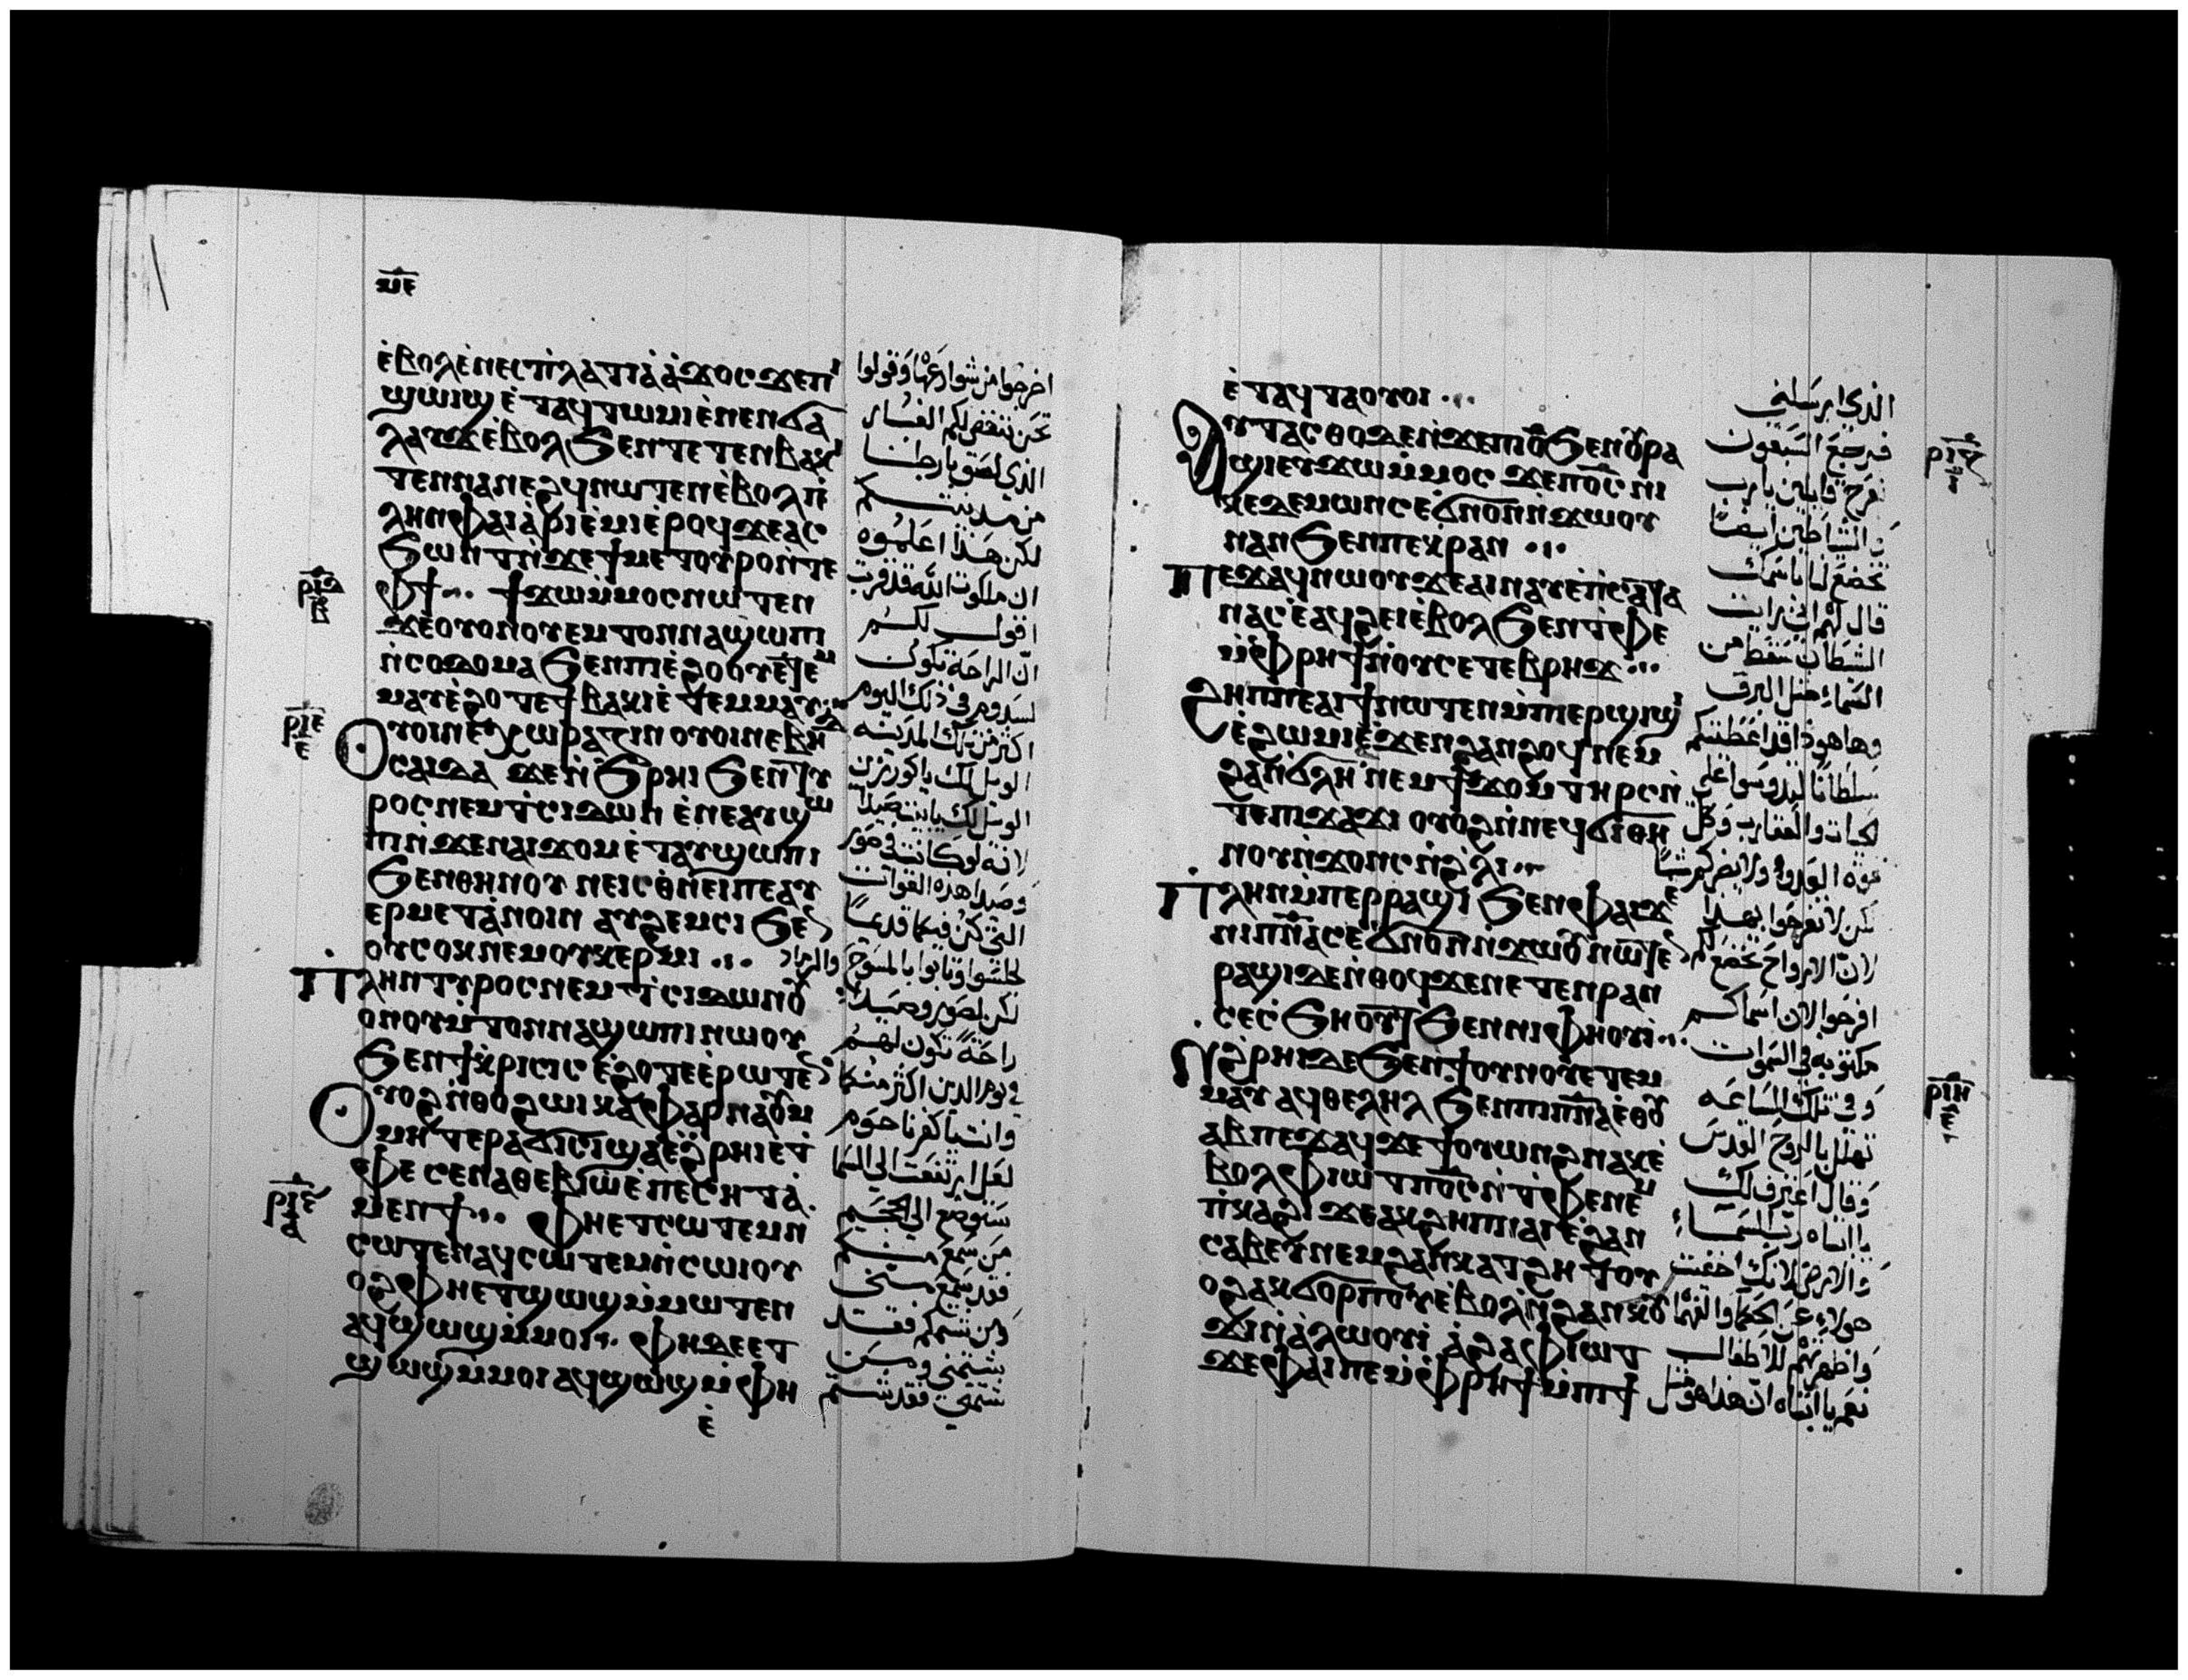 ⲙⲉ
ⲉ̀ⲃⲟⲗⲉ̀ⲛⲉⲥⲡ̀ⲗⲁⲧⲓⲁ̀ⲁ̀ϫⲟⲥϫⲉⲡⲓ
ϣⲱⲓϣ ⲉ̀ⲧⲁϥⲧⲱⲙⲓⲉ̀ⲛⲉⲛϭⲁ
ⲗⲁⲩϫⲉ̀ⲃⲟⲗϧⲉⲛⲧⲉⲧⲉⲛⲃⲁⲕⲓ
ⲧⲉⲛⲛⲁⲛⲉϩϥⲛⲱⲧⲉⲛⲉ̀ⲃⲟⲗⲡ̀
ⲗⲏⲛⲫⲁⲓⲁ̀ⲣⲓⲉ̀ⲙⲓⲉ̀ⲣⲟϥϫⲉⲁⲥ
ϧⲱⲛⲧⲛ̀ϫⲉϯⲙⲉⲧⲟⲩⲣⲟⲛ̀ⲧⲉ
ⲫϯ... ϯϫⲱⲙ̀ⲙⲟⲥⲛⲱⲧⲉⲛ
ϫⲉⲟⲩⲟⲛⲟⲩⲉⲙⲧⲟⲛⲛⲁϣⲱⲡⲓ
ⲛ̀ⲥⲟⲇⲟⲙⲁϧⲉⲛⲡⲓⲉ̀ϩⲟⲟⲩⲉ̀ⲧⲉⲙ
ⲙⲁⲩⲉ̀ϩⲟⲧⲉϯⲃⲁⲕⲓⲉ̀ⲧⲉⲙⲙⲁⲩ
ⲟⲩⲟⲓⲛⲉⲭⲱⲣⲁⲍⲓⲛ ⲟⲩⲟⲓⲛⲉⲃⲏ
ⲥⲁⲓⲇⲁ ϫⲉⲛ̀ϧⲣⲏⲓ ϧⲉⲛⲧⲩ
ⲣⲟⲥⲛⲉⲙⲧ̀ⲥⲓⲇⲱⲛ ⲉ̀ⲛⲉⲁⲩϣⲱ
ⲡⲓⲛ̀ϫⲉⲛⲁⲓϫⲟⲙⲉ̀ⲧⲁⲩϣⲱⲡⲓ
ϧⲉⲛⲑⲏⲛⲟⲩ ⲛⲉⲓⲥⲑ̀ⲛⲉⲓⲡⲉⲁⲩ
ⲉⲣⲙⲉⲧⲁ̀ⲛⲟⲓⲛ ⲁⲩϩⲉⲙⲥⲓ ϧⲉⲛ
ⲟⲩⲥⲟⲕⲛⲉⲙⲟⲩⲕⲉⲣⲙⲓ ...
ⲡ̀ⲗⲏⲛⲧⲩⲣⲟⲥⲛⲉⲙⲧ̀ⲥⲓⲇⲱⲛⲟⲩ
ⲟⲛⲟⲩⲙ̀ⲧⲟⲛⲛⲁϣⲱⲡⲓⲛⲱⲟⲩ
ϧⲉⲛϯⲕ̀ⲣⲓⲥⲓⲥ ⲉ̀ϩⲟⲧⲉⲉ̀ⲣⲱⲧⲉⲛ
ⲟⲩⲟϩⲛ̀ⲑⲟϩⲱⲓⲕⲁⲫⲁⲣⲛⲁⲟⲩⲙ
ⲙⲏⲧⲉⲣⲁϭⲓⲥⲓϣⲁⲉ̀ϩⲣⲏⲓⲉ̀ⲧ
ⲫⲉ ⲥⲉⲛⲁⲑⲉⲃⲓⲱ̀ⲉ̀ⲡⲉⲥⲏⲧⲁ̀
ⲙⲉⲛϯ... ⲫⲏⲉⲧⲥⲱⲧⲉⲙⲛ̀
ⲥⲱⲧⲉⲛⲁϥⲥⲱⲧⲉⲙⲛ̀ⲥⲱⲓⲟⲩ
ⲟϩⲫⲏⲉⲧϣⲱϣⲙ̀ⲙⲱⲧⲉⲛ
ⲁϥϣⲱϣⲙ̀ⲙⲟⲓ... ⲫⲏⲇⲉⲉⲧ
ϣⲱϣⲙ̀ⲙⲟⲓⲁϥϣⲱϣⲙ̀ⲫⲏ
ⲉ̀
ⲣⲓⲇ
ⲃ
ⲣⲓⲉ
ⲉ
ⲣⲓⲋ
ⲁ
اخرجوا من شوارعها وقولوا
نحن ننفض لكم الغبار
الذي لصق بارجلنا
من مدينتكم
لكن هذا اعلموه
ان ملكوت الله قد قربت
اقول لكم
انّ الراحة تكون
لسدوم في ذلك اليوم
اكثر من تلك المدينه
الويل لك يا كورزين
الويل لك يا بيت صيدا
لانه لو كانت في صور
وصيدا هذه القوات
التي كن فيكما قديمًا
لجلسوا وتابوا بالمسوح والرماد
لكن لصور وصيدا
راحة تكون لهم
في يوم الدين اكثر منكما
وانت يا كفرناحوم
لعل ارتفعت الى السما
ستوضع الى الجحيم
من سمع منكم
فقد سمع مني
ومن شتمكم فقد
شتمني ومن
شتمني فقد شتم
ⲉ̀ⲧⲁϥⲧⲁⲟⲩⲟⲓ ...
ⲁⲩⲧⲁⲥⲑⲟⲇⲉⲛ̀ϫⲉⲡⲓⲟ̅ϧⲉⲛⲟⲩⲣⲁ
ϣⲓⲉⲩϫⲱⲙ̀ⲙⲟⲥ ϫⲉⲡⲟ̅ⲥ̅ ⲛⲓ
ⲕⲉⲇⲉⲙⲱⲛⲥⲉ̀ϭⲛⲟⲛ̀ⲛ̀ϫⲱⲟⲩ
ⲛⲁⲛϧⲉⲛⲡⲉⲕⲣⲁⲛ ...
ⲡⲉϫⲁϥⲛⲱⲟⲩϫⲉⲁⲓⲛⲁⲩⲉ̀ⲡ̀ⲥⲁⲧⲁ
ⲛⲁⲥⲉ̀ⲁϥϩⲉⲓⲉ̀ⲃⲟⲗϧⲉⲛⲧ̀ⲫⲉ
ⲙ̀ⲫⲣⲏϯⲛ̀ⲟⲩⲥⲉⲧⲉⲃⲣⲏϫ...
ϩⲏⲡⲡⲉⲁⲓϯⲛⲱⲧⲉⲛⲙ̀ⲡⲓⲉⲣϣⲓϣⲓ
ⲉ̀ϩⲱⲙⲓⲉ̀ϫⲉⲛϩⲁⲛϩⲟϥⲛⲉⲙ
ϩⲁⲛϭⲗⲏ ⲛⲉⲙϯϫⲟⲙⲧⲏⲣⲥⲛ̀
ⲧⲉⲡⲓϫⲁϫⲓ ⲟⲩⲟϩⲛ̀ⲛⲉϥϭⲓⲑⲏ
ⲛⲟⲩⲛ̀ϫⲟⲛⲥⲛ̀ϩ̀ⲗⲓ...
ⲡ̀ⲗⲏⲛⲙ̀ⲡⲉⲣⲣⲁϣⲓ ϧⲉⲛⲫⲁⲓϫⲉ
ⲛⲓⲡ̅ⲛ̅ⲁ̅ⲥⲉ̀ϭⲛⲟⲛ̀ⲛ̀ϫⲱⲟⲩⲛⲱⲧⲉⲛ
ⲣⲁϣⲓⲇⲉⲛ̀ⲑⲟϥϫⲉⲛⲉⲧⲉⲛⲣⲁⲛ
ⲥⲉⲥ̀ϧⲏⲟⲩⲧϧⲉⲛⲛⲓⲫⲏⲟⲩⲓ...
ⲛ̀ϩ̀ⲣⲏⲓⲇⲉϧⲉⲛϯⲟⲩⲛⲟⲩⲉ̀ⲧⲉⲙ
ⲙⲁⲩ ⲁϥⲑⲉⲗⲏⲗ ϧⲉⲛⲡⲓⲡ̅ⲛ̅ⲁ̅ⲉ̀ⲑⲟⲩ
ⲁⲃⲡⲉϫⲁϥϫⲉϯⲟⲩⲱⲛϩⲛⲁⲕⲉ̀
ⲃⲟⲗⲫⲓⲱⲧⲡⲟ̅ⲥ̅ⲛ̀ⲧ̀ⲫⲉⲛⲉⲙ
ⲡ̀ⲕⲁϩⲓ ϫⲉⲁⲕϩⲏⲡⲛⲁⲓⲉ̀ϩⲁⲛ
ⲥⲁⲃⲉⲩⲛⲉⲙϩⲁⲛⲕⲁⲧϩⲏⲧⲟⲩ
ⲟϩⲁⲕϭⲟⲣⲡⲟⲩⲉ̀ⲃⲟⲗⲛ̀ϩⲁⲛⲕⲟⲩ
ϫⲓⲛ̀ⲁ̀ⲗⲱⲟⲩⲓ̀ ⲁ̀ϩⲁⲫⲓⲱⲧ
ϫⲉⲫⲁⲓⲡⲉⲙ̀ⲫⲣⲏϯⲙ̀ⲡϯ
الذي ارسلني
فرجع السبعون
بفرح قايلين يا رب
ان الشياطين ايضًا
تخضع لنا باسمك
قال لهم اني رايت
الشيطان سقط من
السماء مثل البرق
وها هوذا قد اعطيتكم
سلطانًا لتدوسوا على
الحيات والعقارب وكل
قوة العدو ولا يضركم شيئًا
لكن لا تفرحوا بهذا
لان الارواح تخضع لكم
افرحوا لان اسماكم
مكتوبه في السموات
وفي تلك الساعه
تهلل بالروح القدس
وقال اعترف لك
يا ابتاه رب السماء
والارض لانك اخفيت
هولاء عن الحكما والفهما
واظهرتهم للاطفال
نعم يا ابتاه ان هذا هو مثل
ⲣⲓⲍ
ⲓ
ⲣⲓⲏ
ⲉ